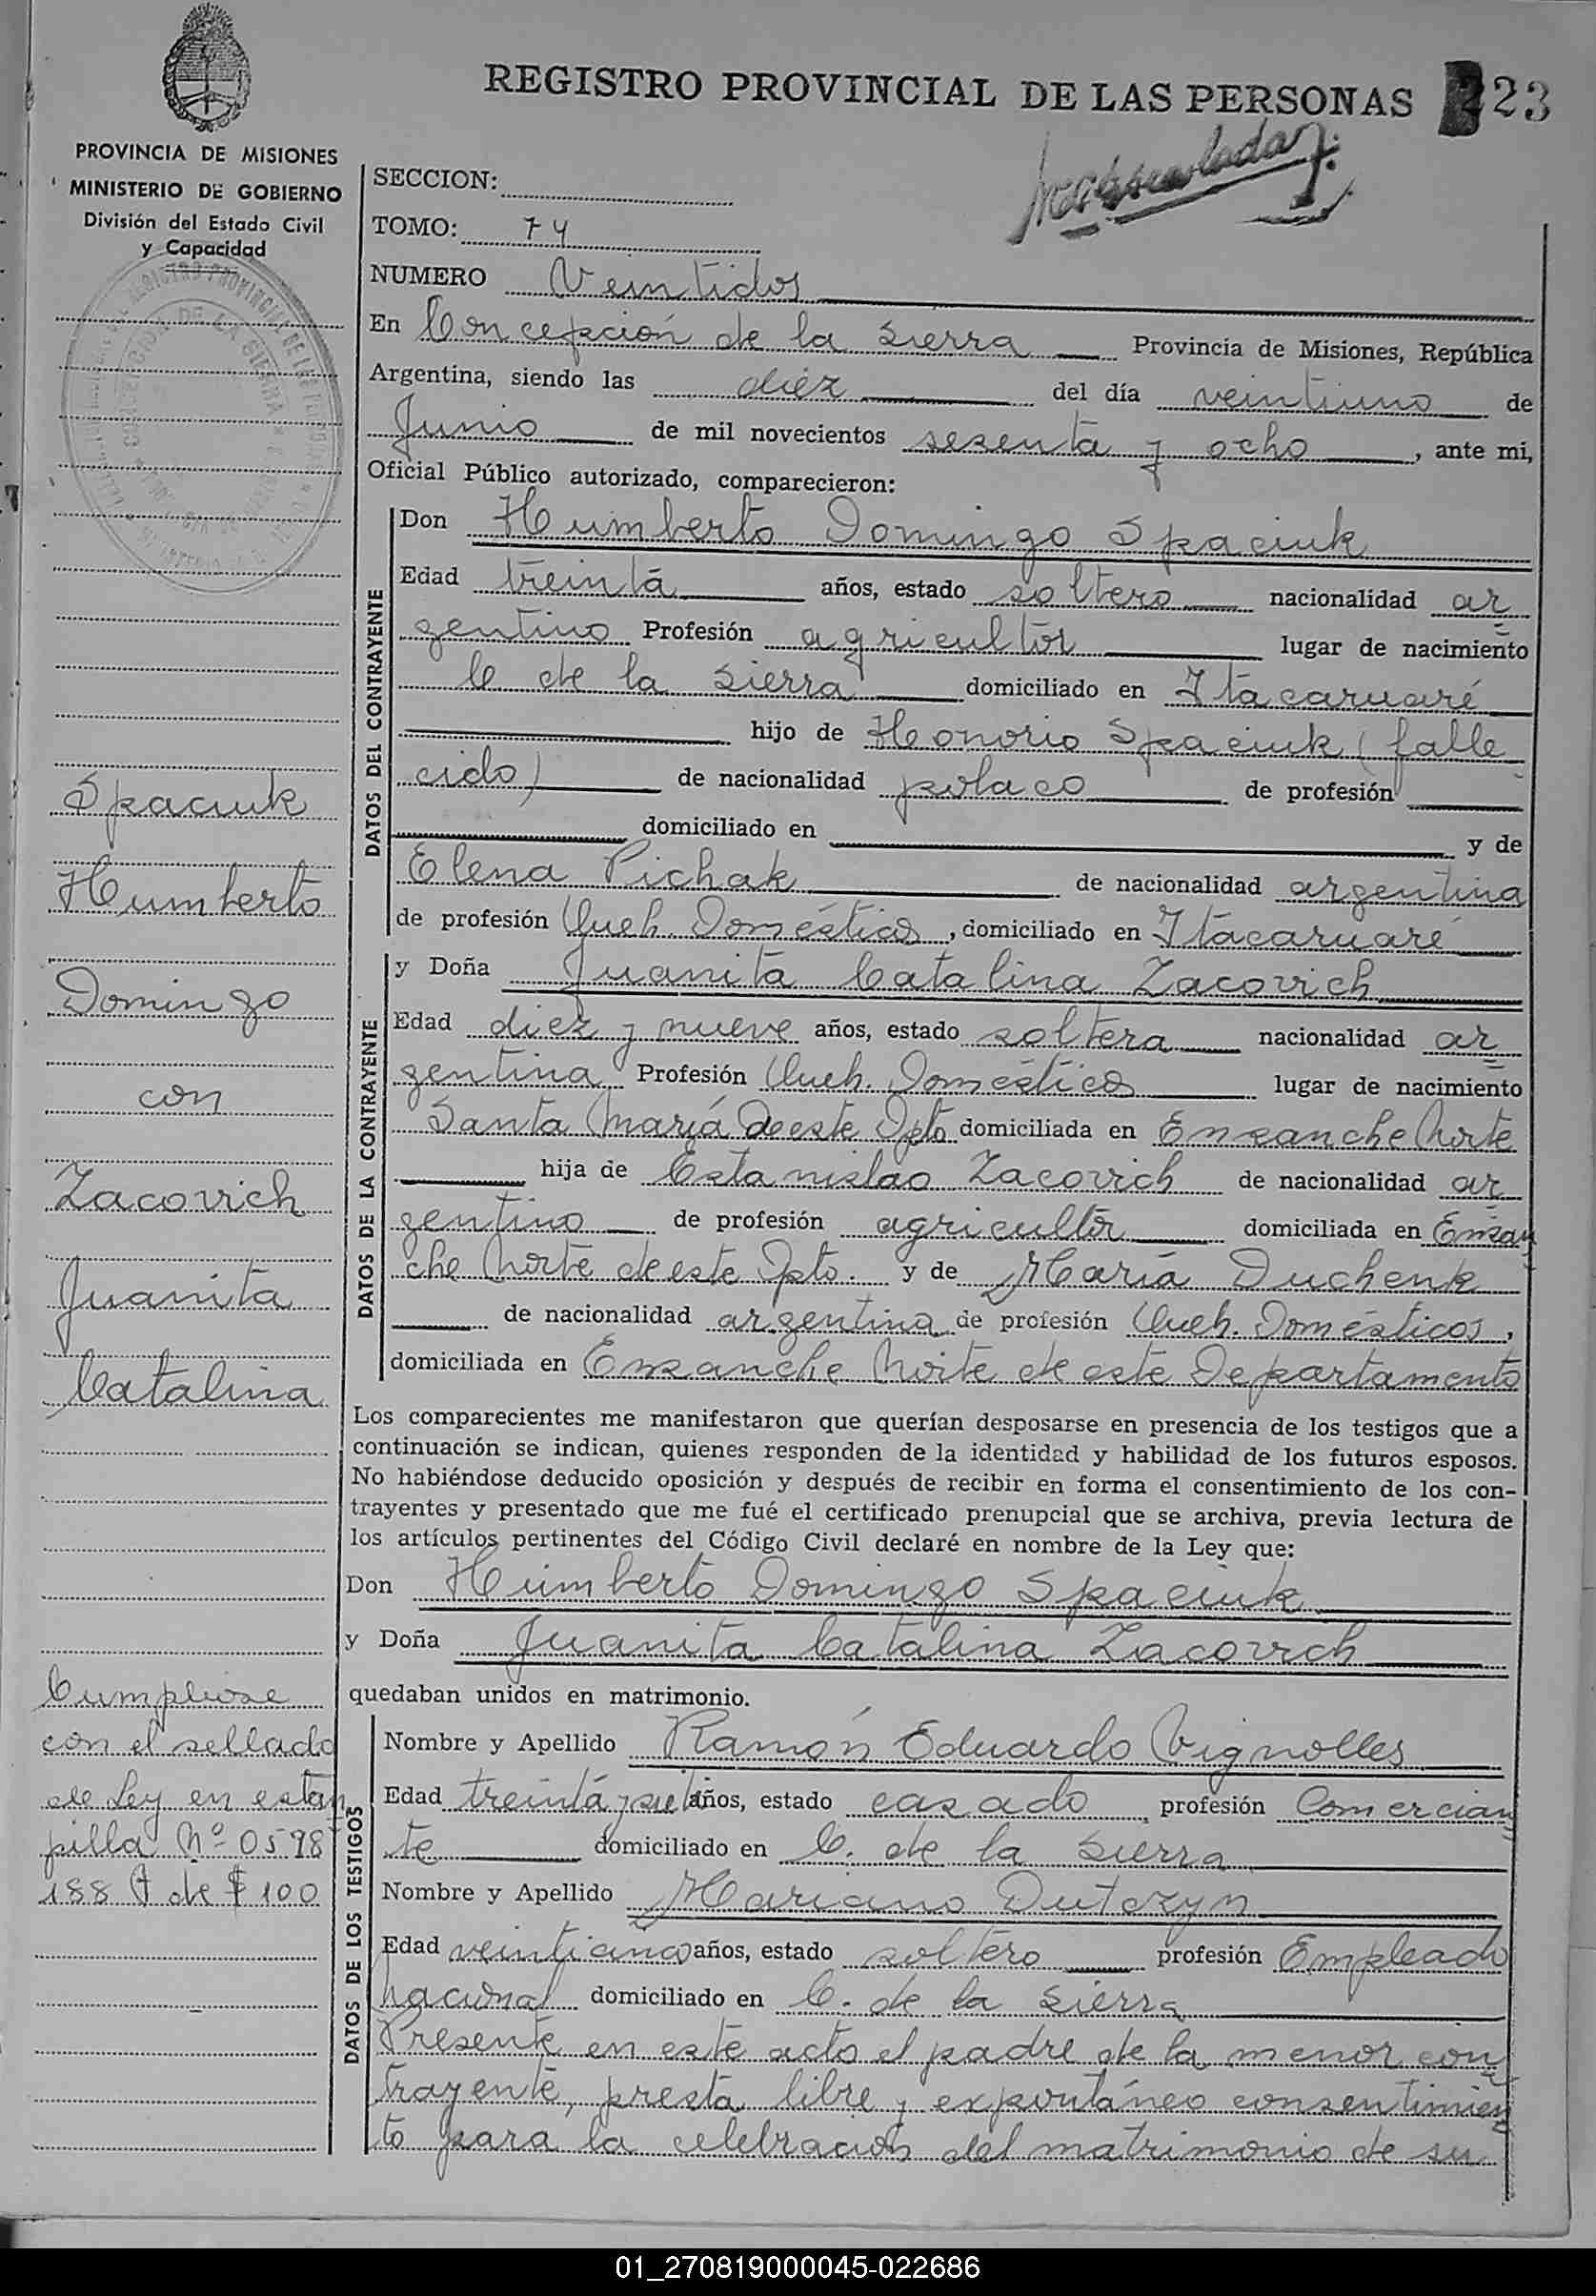 REGISTRO PROVINCIAL DE LAS PERSONAS 23
PROVINCIA DE MISIONES
MINISTERIO DE GOBIERNO
División del Estado Civil
y Capacidad
SECCION:
TOMO: 74
NUMERO Veintidos
En Concepción de la Sierra Provincia de Misiones, República
Argentina, siendo las diez del día veintiuno de
Junio de mil novecientos sesenta y ocho, ante mi,
Oficial Público autorizado, comparecieron:
DATOS DEL CONTRAYENTE
Don Humberto Domingo Spaciuk
Edad treinta años, estado soltero nacionalidad ar
gentino Profesión agricultor lugar de nacimiento
C de la Sierra domiciliado en Itacaruaré
hijo de Honorio Spaciuk (falle
cido) de nacionalidad polaco de profesión
domiciliado en y de
Elena Pichak de nacionalidad argentina
de profesión Queh. Domésticos, domiciliado en Itacaruaré
DATOS DE LA CONTRAYENTE
y Doña Juanita Catalina Zacovich
Edad diez y nueve años, estado soltera nacionalidad ar
gentina Profesión Queh. Domésticos lugar de nacimiento
Santa María de este Dpto domiciliada en Ensanche Norte
hija de Estanislao Zacovich de nacionalidad ar
gentino de profesión agricultor domiciliada en Ensan
che Norte de este Dpto. y de María Duchenk
de nacionalidad argentina de profesión Queh. Domésticos,
domiciliada en Ensanche Norte de este Departamento
Los comparecientes me manifestaron que querían desposarse en presencia de los testigos que a
continuación se indican, quienes responden de la identidad y habilidad de los futuros esposos.
No habiéndose deducido oposición y después de recibir en forma el consentimiento de los con-
trayentes y presentado que me fué el certificado prenupcial que se archiva, previa lectura de
los artículos pertinentes del Código Civil declaré en nombre de la Ley que:
Don Humberto Domingo Spaciuk
y Doña Juanita Catalina Zacovich
quedaban unidos en matrimonio.
DATOS DE LOS TESTIGOS
Nombre y Apellido Ramón Eduardo Vignolles
Edad treinta y siete años, estado casado profesión Comercian
te domiciliado en C. de la Sierra
Nombre y Apellido Mariano Dutczyn
Edad veinticinco años, estado soltero profesión Empleado
Nacional domiciliado en C. de la Sierra
Presente en este acto el padre de la menor con
trayente, presta libre y expontáneo consentimien
to para la celebración del matrimonio de su
Spaciuk
Humberto
Domingo
con
Zacovich
Juanita
Catalina
Cumpliose
con el sellado
de Ley en estam
pilla Nº 0598
188 A de $ 100
01_270819000045-022686